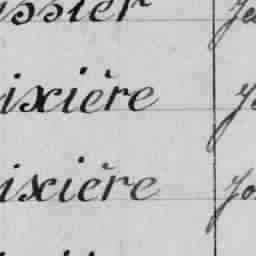 ssier Je
ixière J
ixière Jo